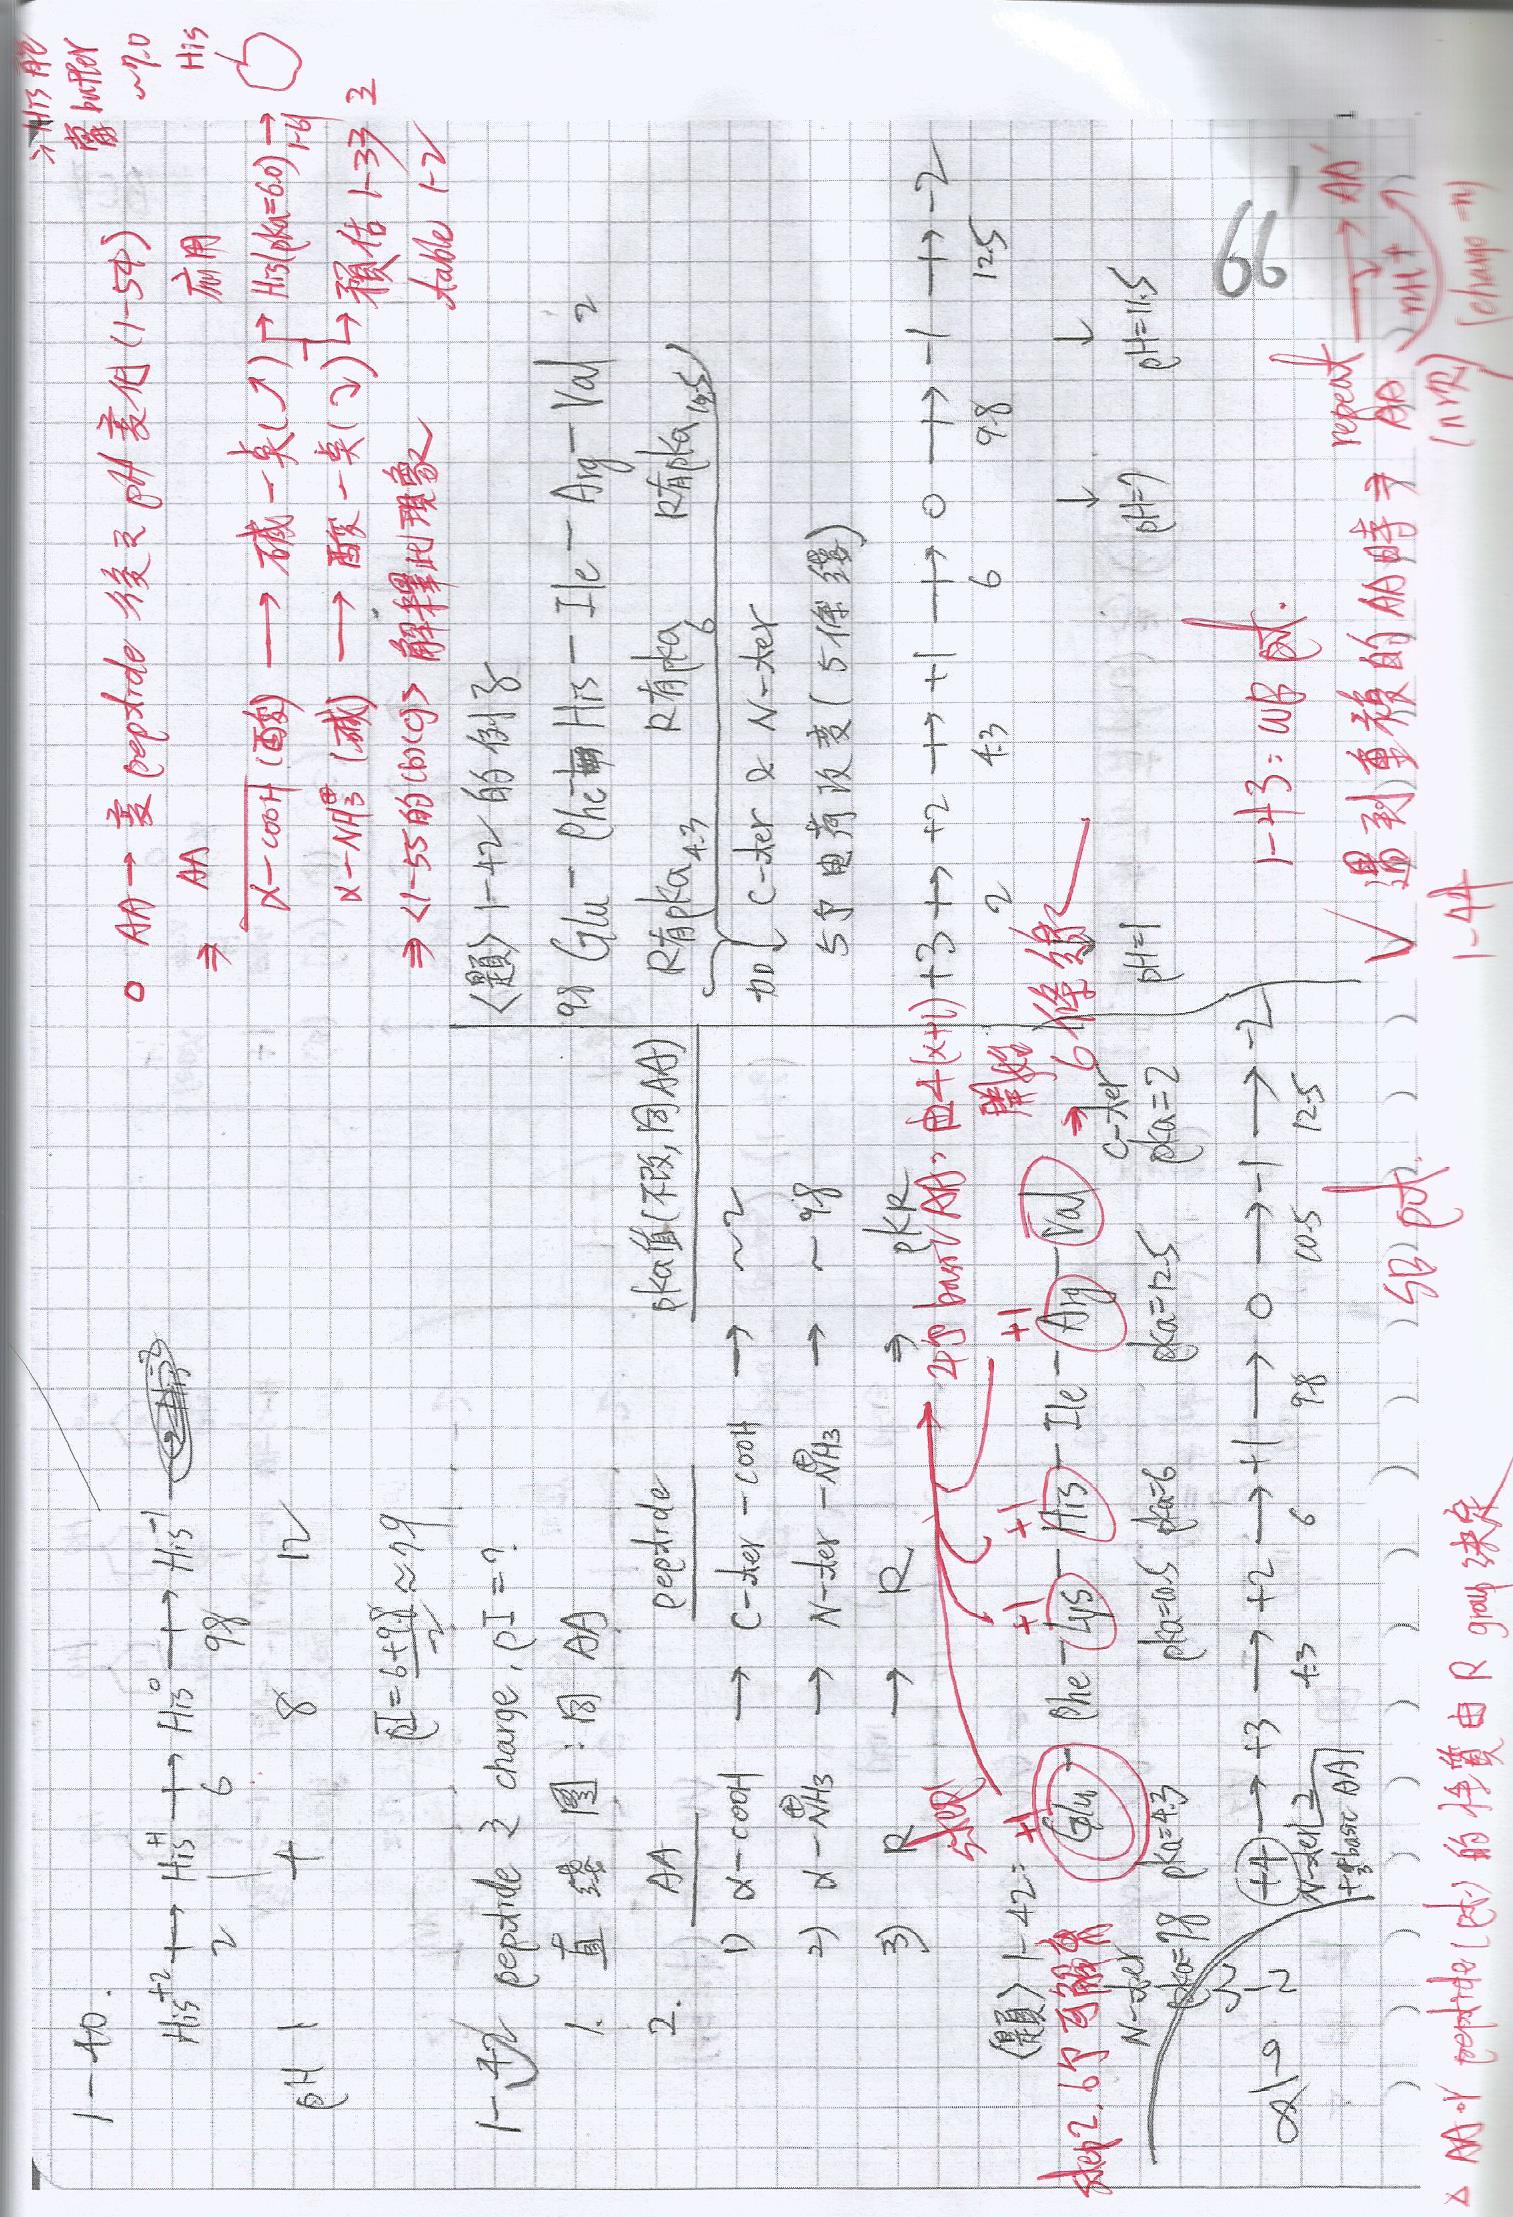 1-40.
His+2 → His+1 → His0 → His-1
2 6 9.8
pH 1 4 8 12
pI = 6+9.8/2 ≈ 7.9
1-42 peptide 之 charge, pI = ?
1. 直線圖:同 AA
2. AA peptide pka值(不改,同AA)
1) α-COOH → C-ter-COOH → ~2
2) α-NH3⊕ → N-ter-NH3⊕ → ~9.8
3) R → R ⇒ pKR
step1 → 4个 basic AA, 由+(x+1) 開始
<題> 1-42: Glu - Phe - Lys - His - Ile - Arg - Val
+1 +1 +1 +1
⇒ 6條線
step2. 6个可解离
N-ter pka=9.8 pka=4.3 pka=10.5 pka=6 pka=12.5 C-ter pka=2
+4 → +3 → +2 → +1 → 0 → -1 → -2
2 4.3 6 9.8 10.5 12.5
N-ter之
+3个basic AA
→ His 能
當 buffer
~7.0
His
○ AA → 變 peptide 後之 pH 變化 (1-54)
⇒ AA 應用
α-COOH (酸) → 碱一点(↗) → His(pka=6.0) → 1-61
α-NH3⊕ (碱) → 酸一点(↘) → 預估 1-33 之
table 1-2
⇒ <1-55的(b)(c)> 解釋此現象
<題> 1-42 的例子
9.8 Glu - Phe - His - Ile - Arg - Val 2
R有pka 4.3 R有pka 6 R有pka 12.5
加 C-ter & N-ter
5个电荷改变 (5條線)
+3 → +2 → +1 → 0 → -1 → -2
2 4.3 6 9.8 12.5
pH=1 pH=7 pH=11.5
1-43: WB pt.
66'
✓ 遇到重複的 AA 時 ⇒ repeat
AA → AA'
nH+
(nVR)
1-44
SB pt.
△ AA or peptide (pt.) 的性質由 R group 決定